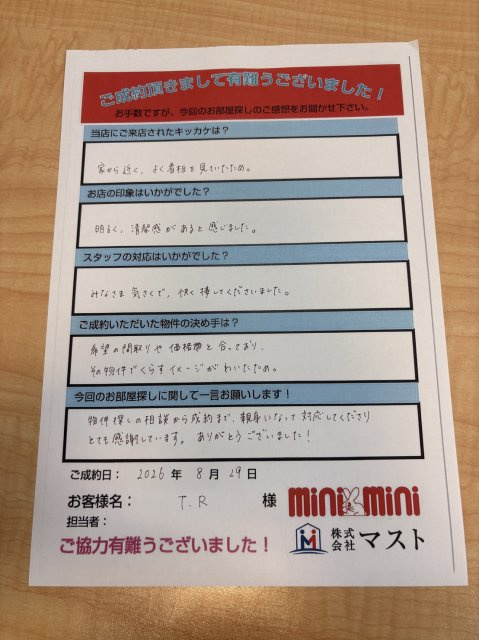 ご成約頂きまして有難うございました！
お手数ですが、今回のお部屋探しのご感想をお聞かせ下さい。
当店にご来店されたキッカケは？
家から近く、よく看板を見ていたため。
お店の印象はいかがでした？
明るく、清潔感があると感じました。
スタッフの対応はいかがでした？
みなさま気さくで、快く接してくださいました。
ご成約いただいた物件の決め手は？
希望の間取りや価格帯と合っており、
その物件でくらすイメージがわいたため。
今回のお部屋探しに関して一言お願いします！
物件探しの相談から成約まで、親身になって対応してくださり
とても感謝しています。ありがとうございました！
ご成約日： 2026 年 8 月 29 日
お客様名： T.R 様
担当者：
ご協力有難うございました！
mini mini
株式会社マスト